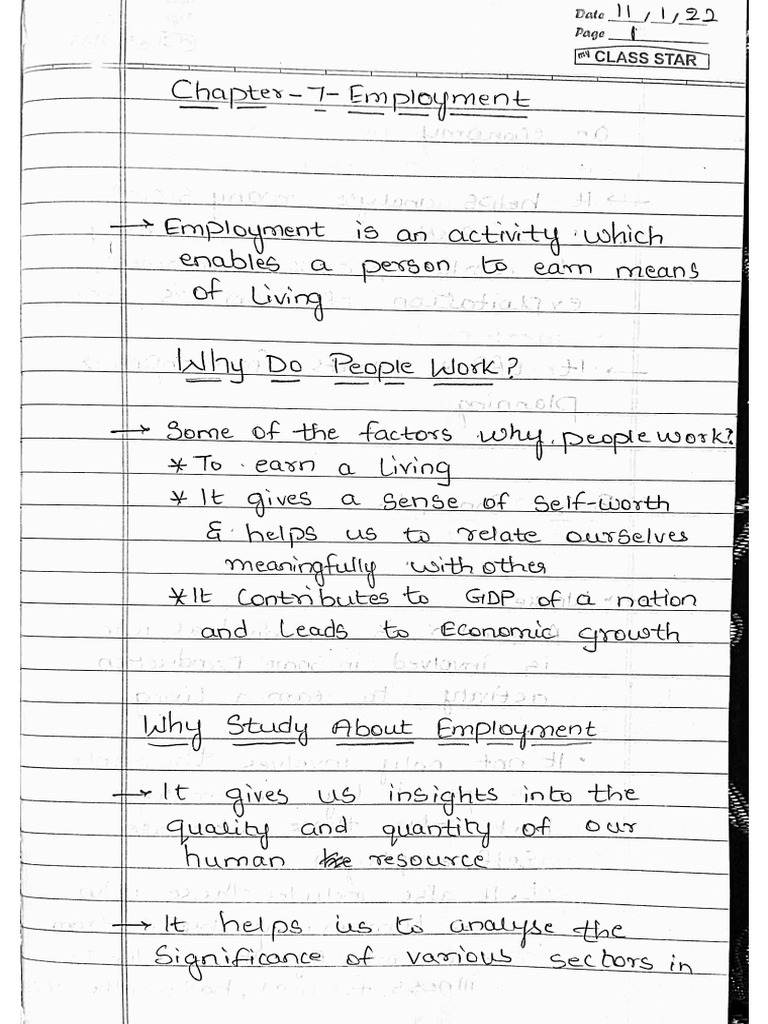 Date 11/1/22
Page 1
my CLASS STAR
Chapter-7-Employment
→ Employment is an activity which
enables a person to earn means
of living
Why Do People Work?
→ Some of the factors why people work?
* To earn a living
* It gives a sense of self-worth
& helps us to relate ourselves
meaningfully with other
* It contributes to GDP of a nation
and leads to Economic growth
Why Study About Employment
→ It gives us insights into the
quality and quantity of our
human resource
→ It helps us to analyse the
significance of various sectors in